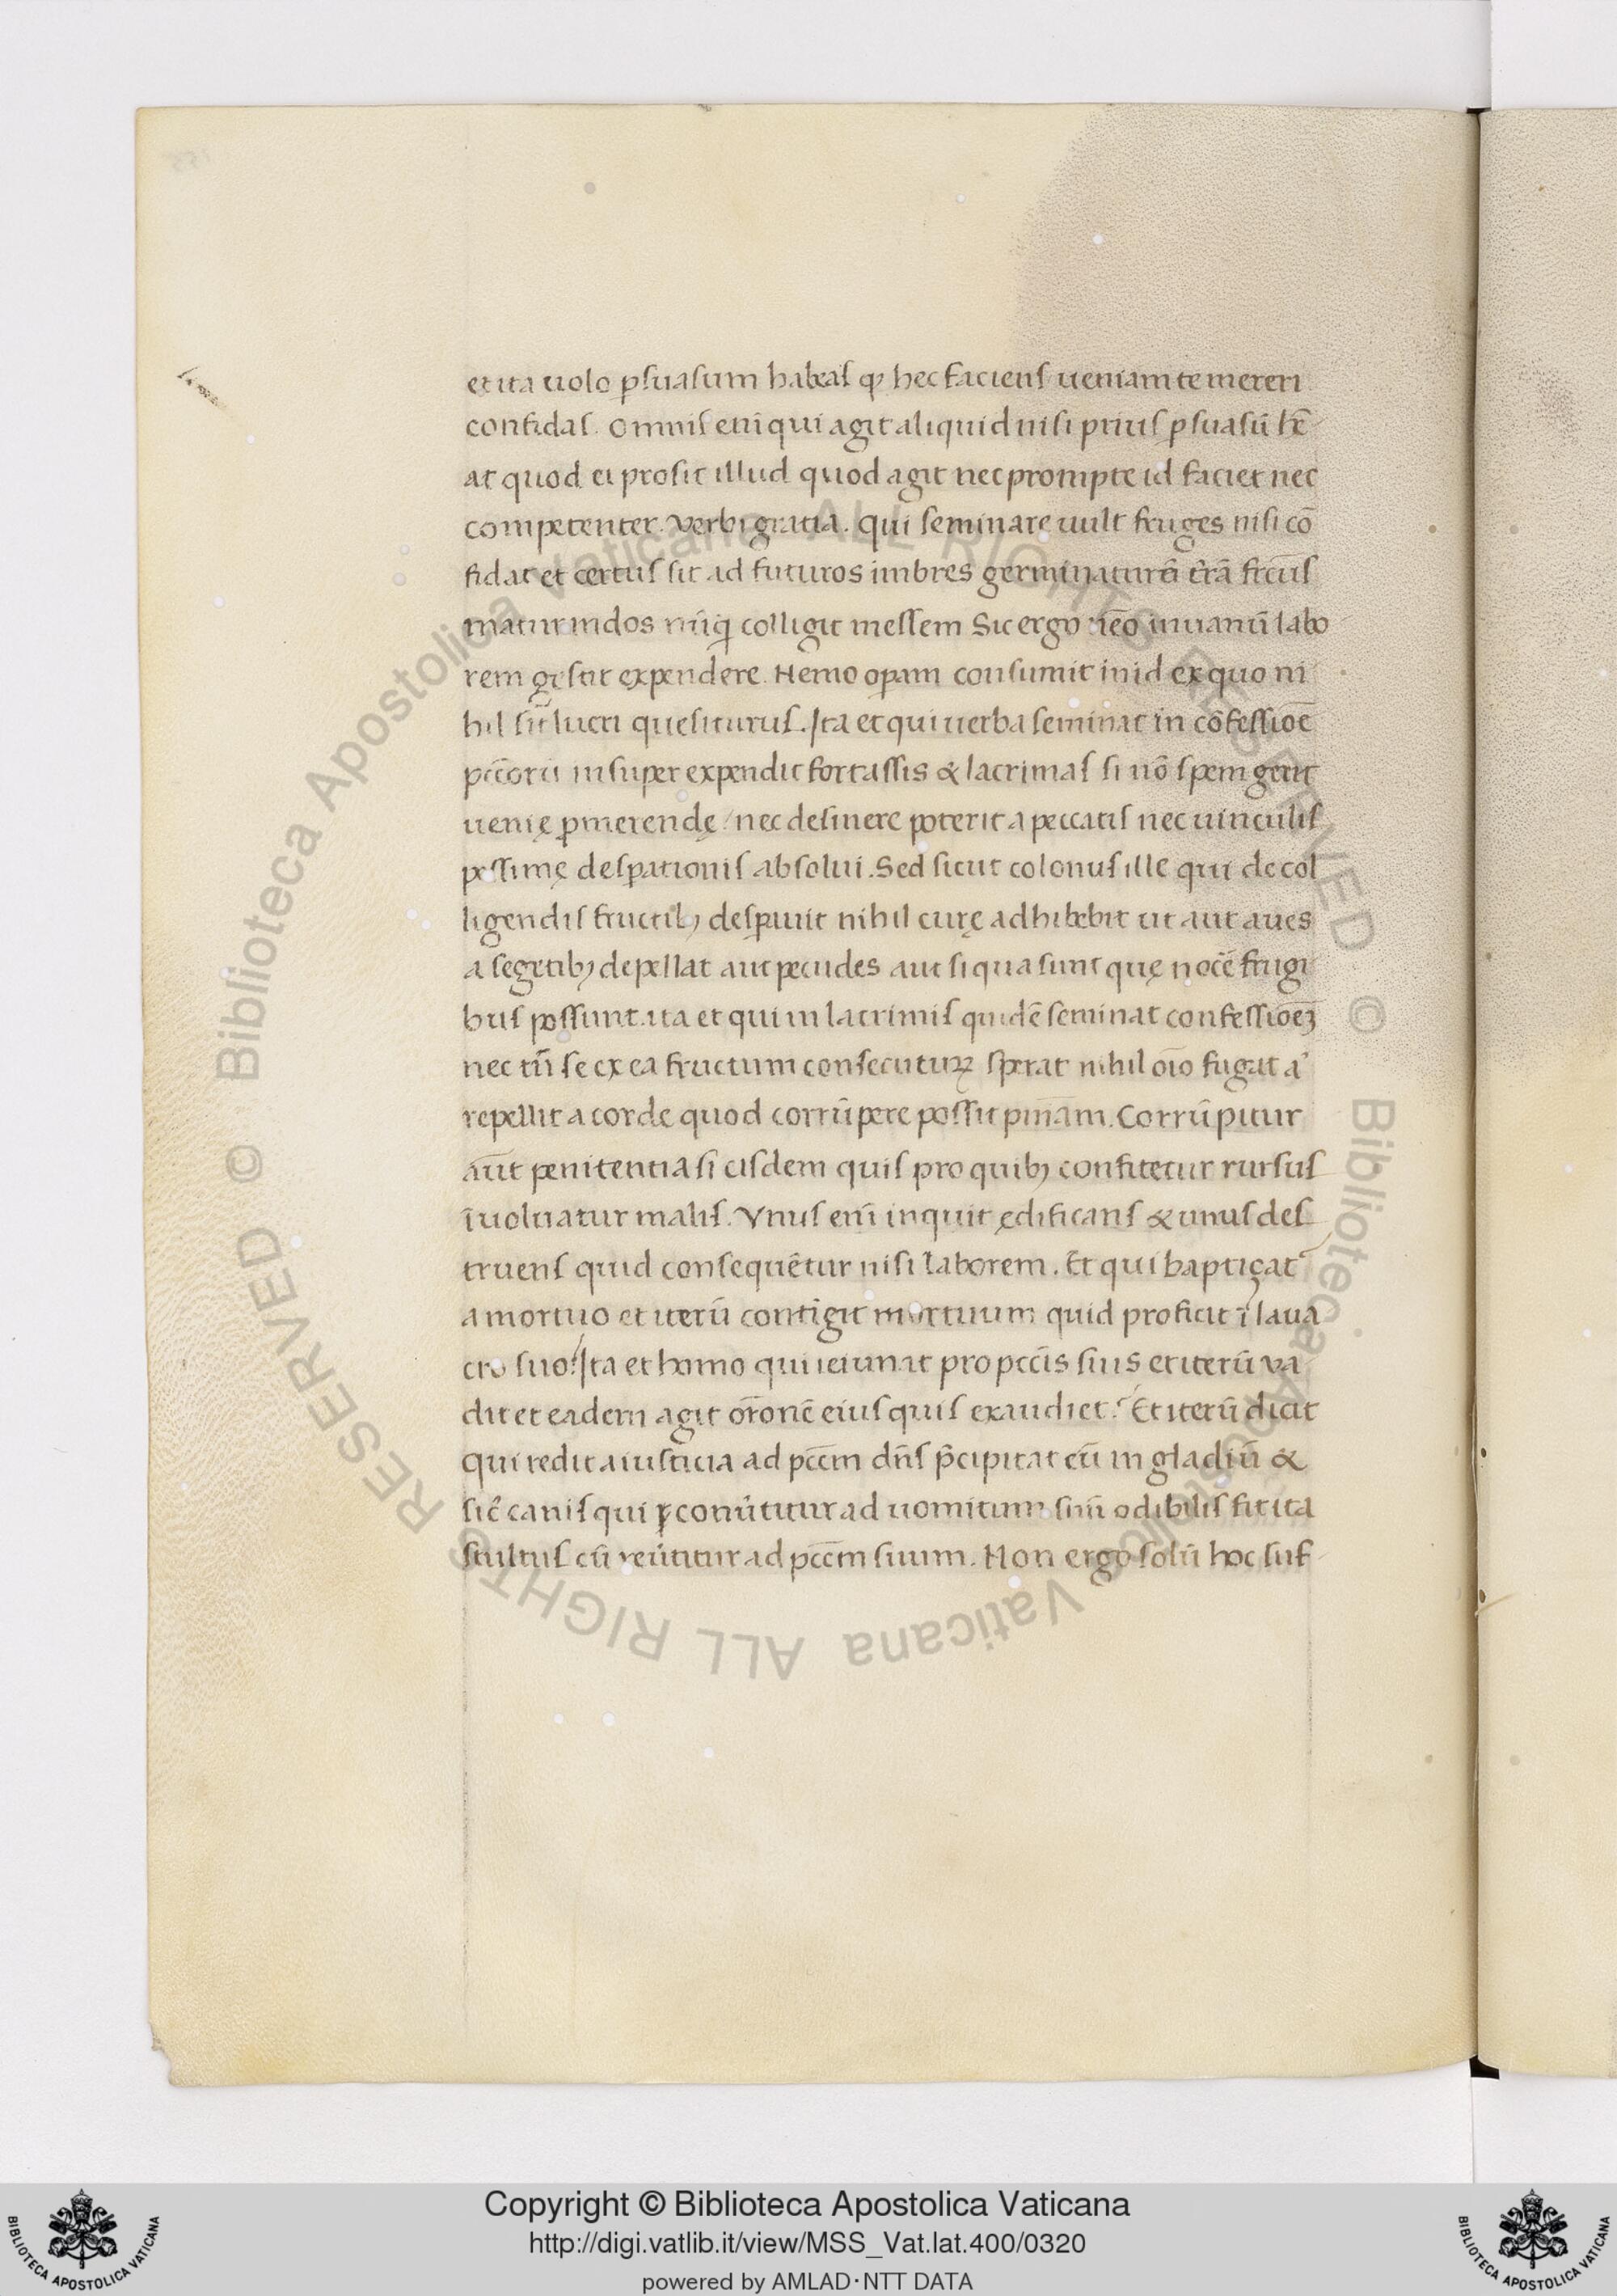 et ita uolo ꝑsuasum habeas ꝙ hec faciens ueniam te mereri
confidas. Omnis eni᷑ qui agit aliquid nisi prius ꝑsuasū hē
at quod ei prosit illud quod agit nec prompte id faciet nec
competenter. Verbi gratia. Qui seminare uult fruges nisi cō
fidat et certus sit ad futuros imbres germinaturā tr̄ā fr̄cus
maturandos nūq̄ colligit messem Sic ergo nēo in uanū labo
rem gestit expendere. Nemo oꝑam consumit in id ex quo ni
hil sit lucri quesiturus. Ita et qui uerba seminat in cōfessiōe
pcc̄orū insuper expendit fortassis & lacrimas si nō spem gerit
uenię ꝓmerendę / nec desinere poterit a peccatis nec uinculis
pessimę desꝑationis absolui. Sed sicut colonus ille qui de col
ligendis fructibꝫ desꝑauit nihil curę adhibebit ut aut aues
a segetibꝫ depellat aut pecudes aut si qua sunt quę nocē frugi
bus possunt. ita et qui in lacrimis quidē seminat confessiōeꝫ
nec tn̄ se ex ea fructum consecuturꝝ sperat nihil oīo fugat a'
repellit a corde quod corrūpere possit pn̄iam. Corrūpitur
aūt penitentia si eisdem quis pro quibꝫ confitetur rursus
īuoluatur malis. Vnus eni᷑ inquit ędificans & unus des
truens quid consequētur nisi laborem. Et qui baptiçat᷑
a mortuo et iterū contīgit mortuum quid proficit ī laua
cro suo? Ita et homo qui ieiunat pro pcc̄is suis et iterū va
dit et eadem agit or̄onē eius quis exaudiet? Et iterū dicit
qui redit a iusticia ad pcc̄m dn̄s p̄cipitat eū in gladiū &
sic̄ canis qui conu̾titur ad uomitum suū odibilis fit ita
stultus cū reu̾titur ad pcc̄m suum. Non ergo solū hoc suf
Copyright © Biblioteca Apostolica Vaticana
http://digi.vatlib.it/view/MSS_Vat.lat.400/0320
powered by AMLAD·NTT DATA
BIBLIOTECA APOSTOLICA VATICANA
BIBLIOTECA APOSTOLICA VATICANA
© Biblioteca Apostolica Vaticana ALL RIGHTS RESERVED
© Biblioteca Apostolica Vaticana ALL RIGHTS RESERVED